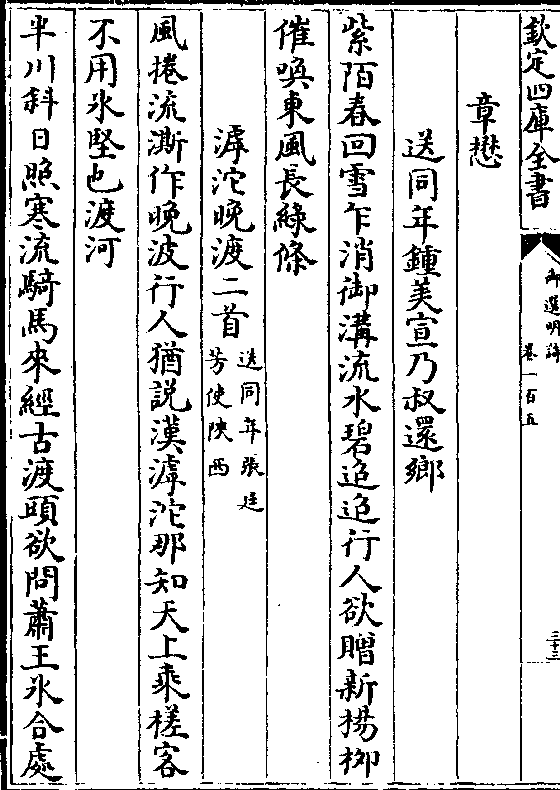 欽定四庫全書
御選明詩
卷一百五
三十三
章懋
送同年鍾美宣乃叔還鄉
紫陌春回雪乍消御溝流水碧迢迢行人欲贈新楊栁
催喚東風長綠條
滹沱晚渡二首送同年張廷
芳使陜西
風捲流澌作晚波行人猶說漢滹沱那知天上乘槎客
不用氷堅也渡河
半川斜日照寒流騎馬來經古渡頭欲問蕭王氷合處